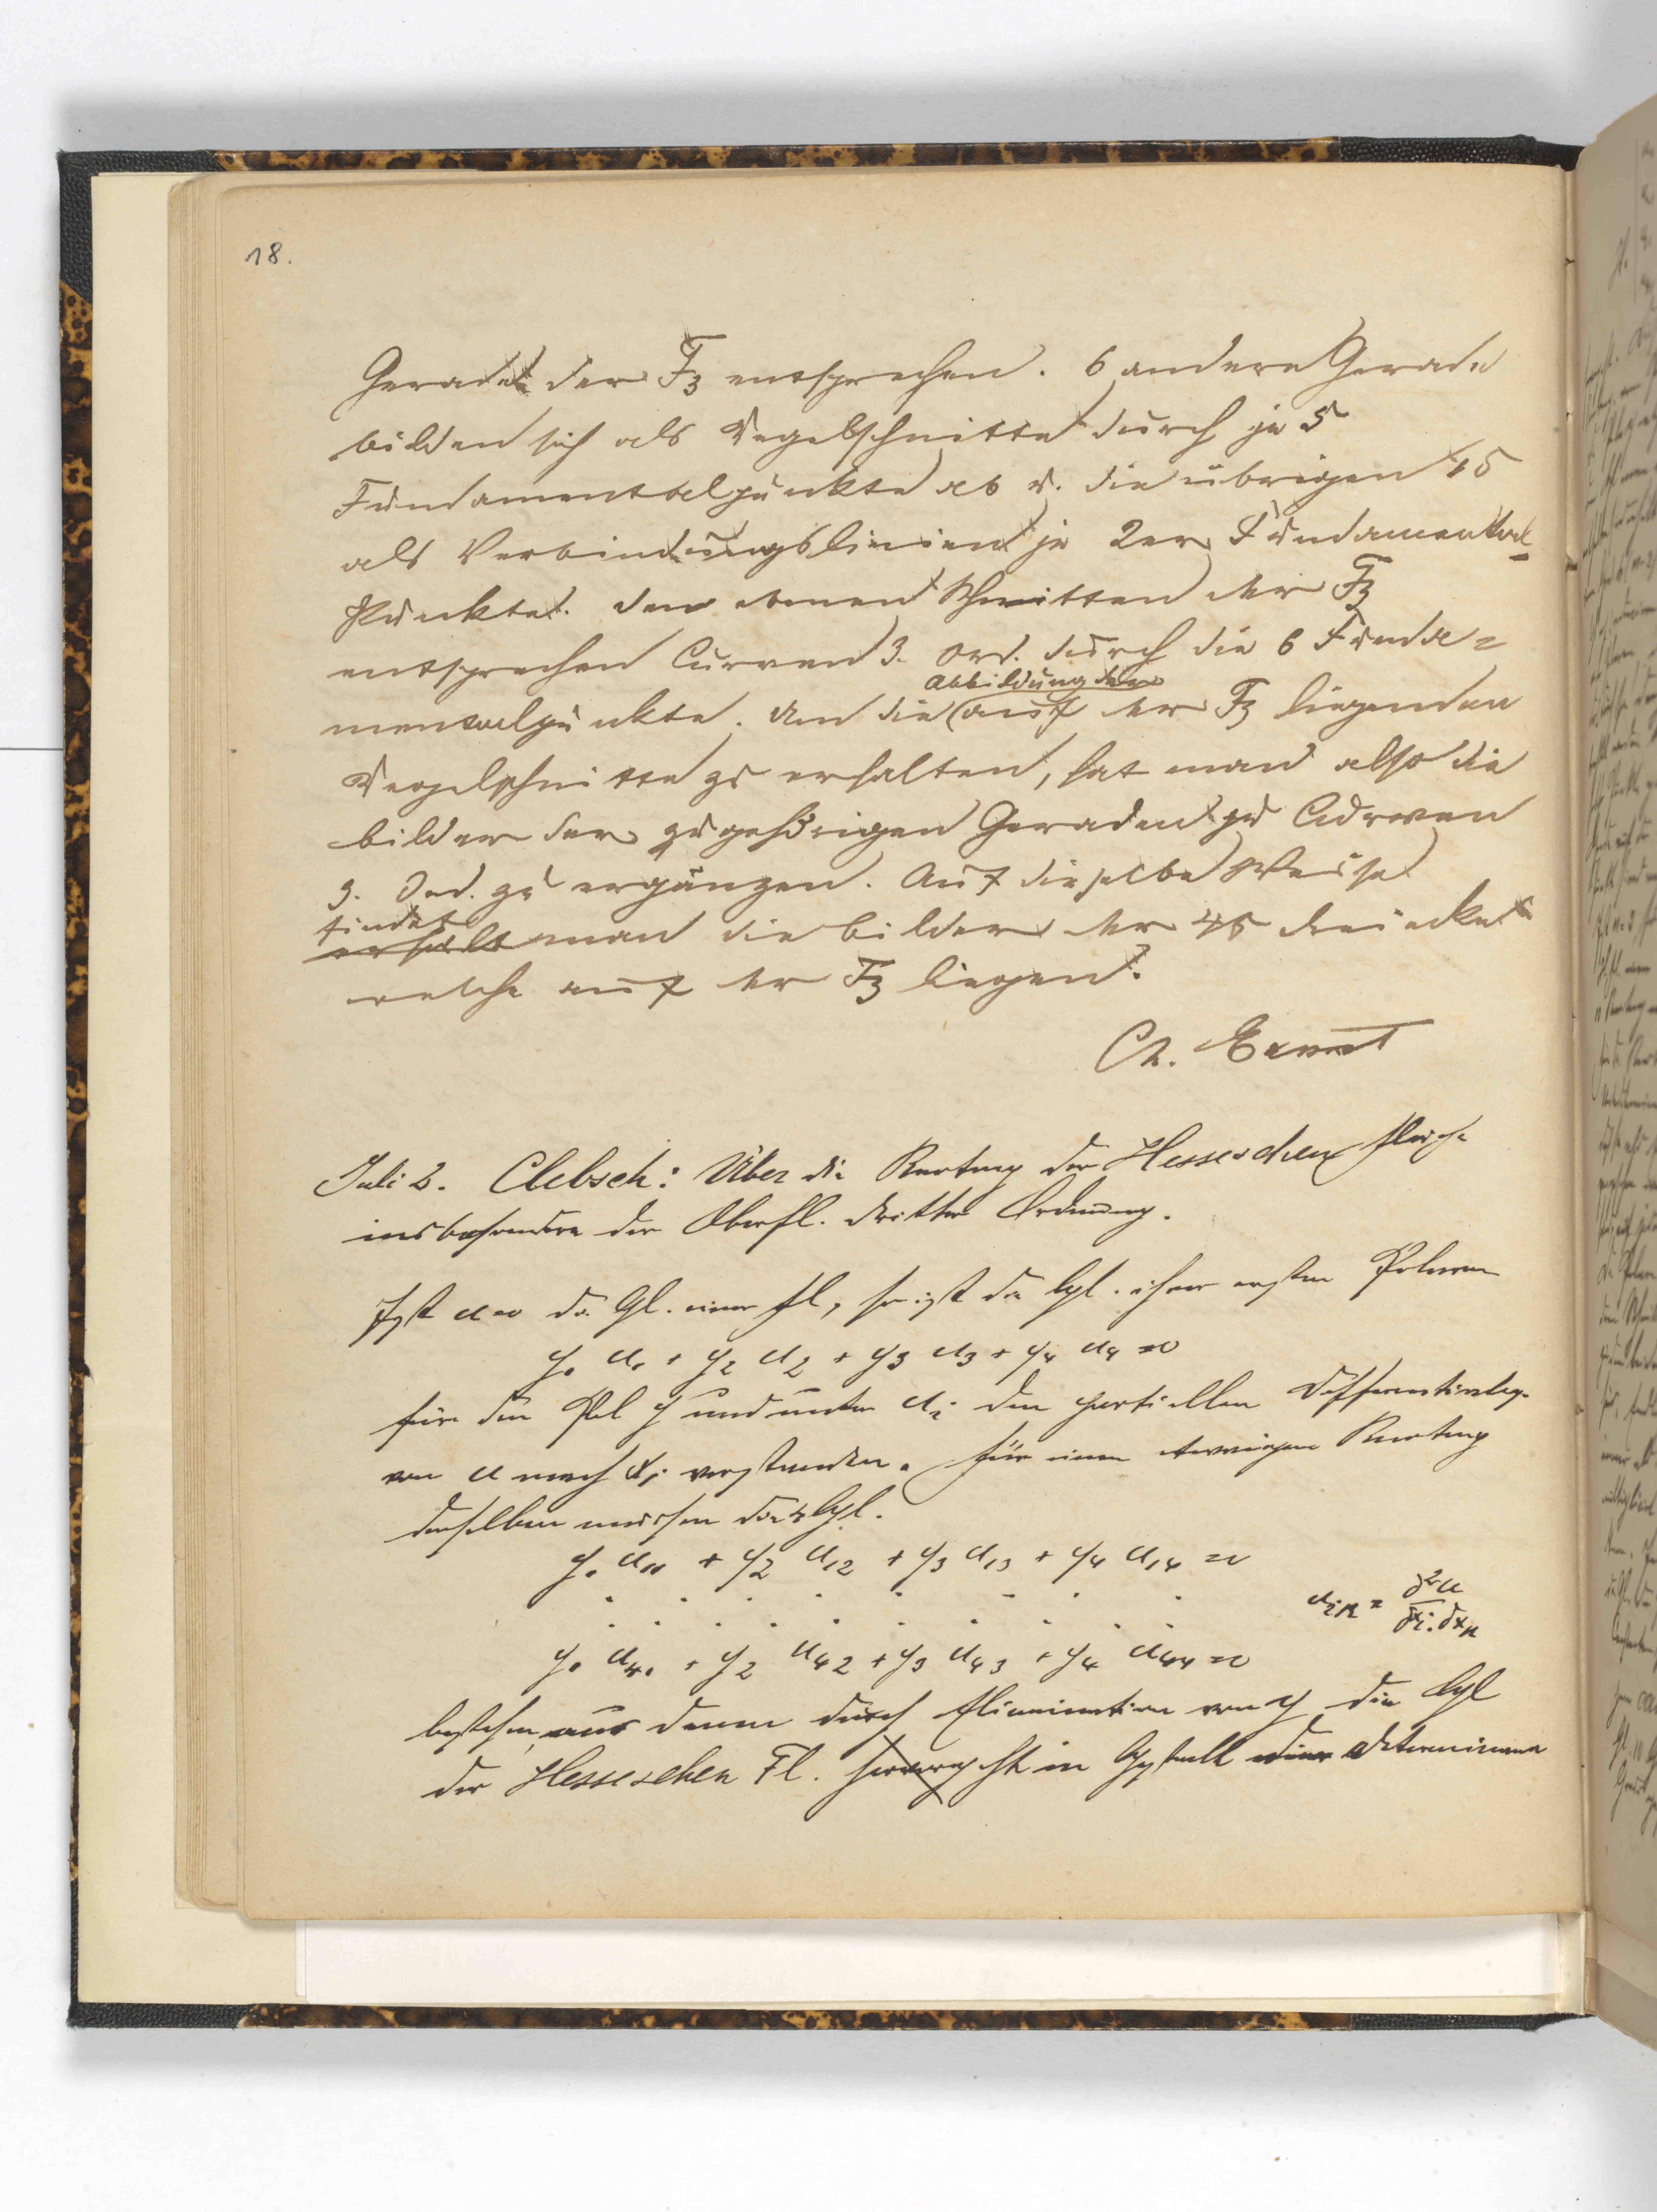 18.
Geraden der F3 entsprechen. 6 andere Gerade
bilden sich als Kegelschnitte durch je 5
Fundamentalpunkte ab u. die übrigen 15
als Verbindungslinien je 2er Fundamental-
Punkte. Den ebenen Schnitten der F3
entsprechen Curven 3. Ord. durch die 6 Funda=
mentalpunkte. Um die Abbildung der auf der F3 liegenden
Kegelschnitte zu erhalten, hat man also die
bilder der zugehörigen Geraden zu Curven
3. Ord. zu ergänzen. Auf dieselbe Weise
findet erhält man die bilder der 45 dreiecke
welche auf der F3 liegen.
Juli 2. Clebsch: Über die Knoten der Hesseschen Fläche
insbesondere der Oberfl. dritter Ordnung.
Ist u=0 die Gl. einer Fl, so ist die Gl. ihrer ersten Polaren
y1 u1 + y2 u2 + y3 u3 + y4 u4 = 0
für den Pol y und unter ui den partiellen Differentialq.
von u nach xi verstanden. Für einen etwaigen Knoten
derselben müssen die 4 Gl.
y1 u11 + y2 u12 + y3 u13 + y4 u14 = 0
uik = ∂²u / ∂xi. ∂xk
y1 u41 + y2 u42 + y3 u43 + y4 u44 = 0
bestehen, aus denen durch Elimination von y die Gl
der Hesseschen Fl. hervorgeht in Gestalt einer Determinante